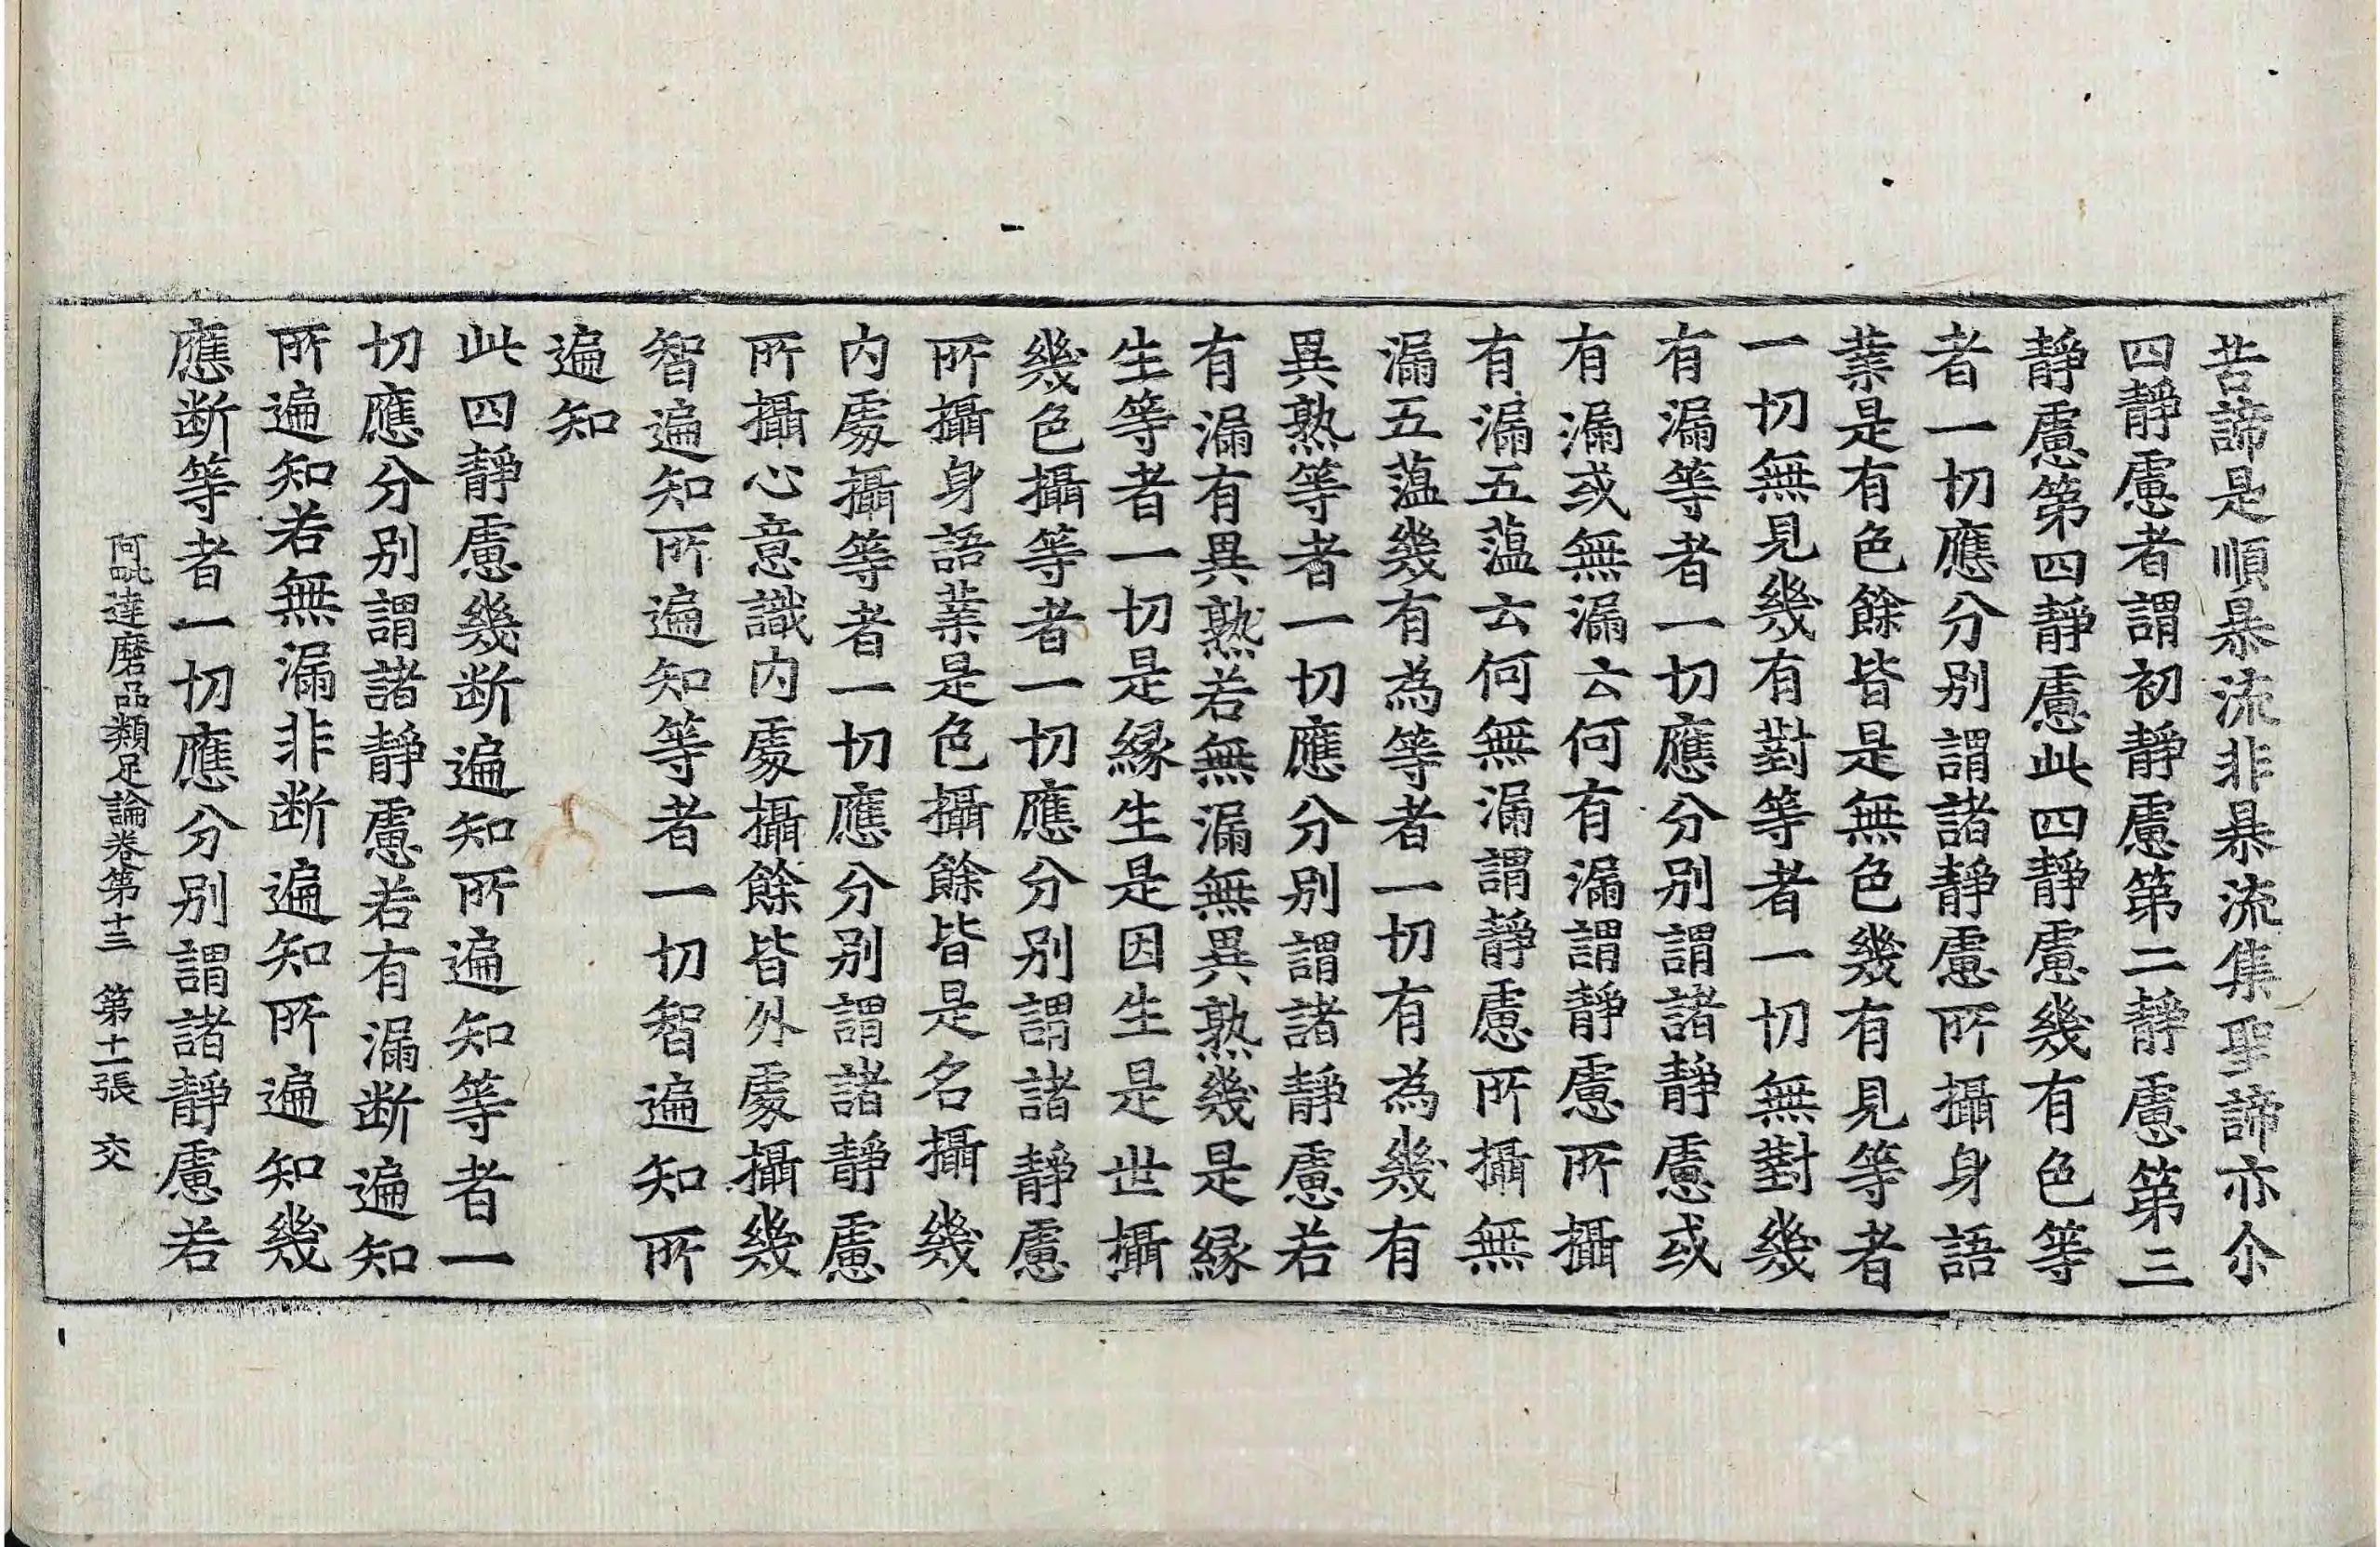 苦諦是順暴流非暴流集聖諦亦尒
四靜慮者謂初靜慮第二靜慮第三
靜慮第四靜慮此四靜慮幾有色等
者一切應分別謂諸靜慮所攝身語
業是有色餘皆是無色幾有見等者
一切無見幾有對等者一切無對幾
有漏等者一切應分別謂諸靜慮或
有漏或無漏云何有漏謂靜慮所攝
有漏五蕰云何無漏謂靜慮所攝無
漏五蕰幾有為等者一切有為幾有
異熟等者一切應分別謂諸靜慮若
有漏有異熟若無漏無異熟幾是緣
生等者一切是緣生是因生是世攝
幾色攝等者一切應分別謂諸靜慮
所攝身語業是色攝餘皆是名攝幾
內處攝等者一切應分別謂諸靜慮
所攝心意識內處攝餘皆外處攝幾
智遍知所遍知等者一切智遍知所
遍知
此四靜慮幾断遍知所遍知等者一
切應分別謂諸靜慮若有漏断遍知
所遍知若無漏非断遍知所遍知幾
應断等者一切應分別謂諸靜慮若
阿毗達磨品類足論卷第十三 第十一張 交